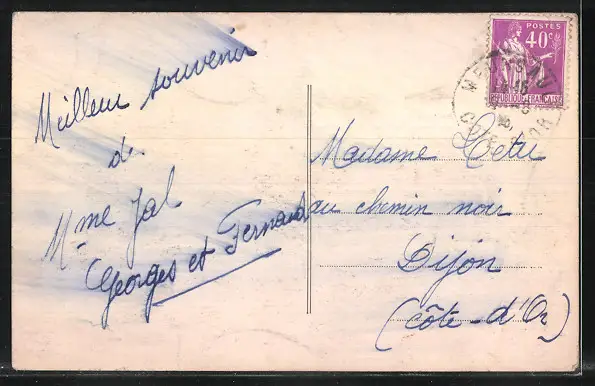 Meilleur souvenir
de
Mme Jal
Georges et Fernand
POSTES
40c
REPUBLIQUE FRANÇAISE
COTE D'OR
Madame Cletu
au chemin noir
Dijon
(côte-d'Or)